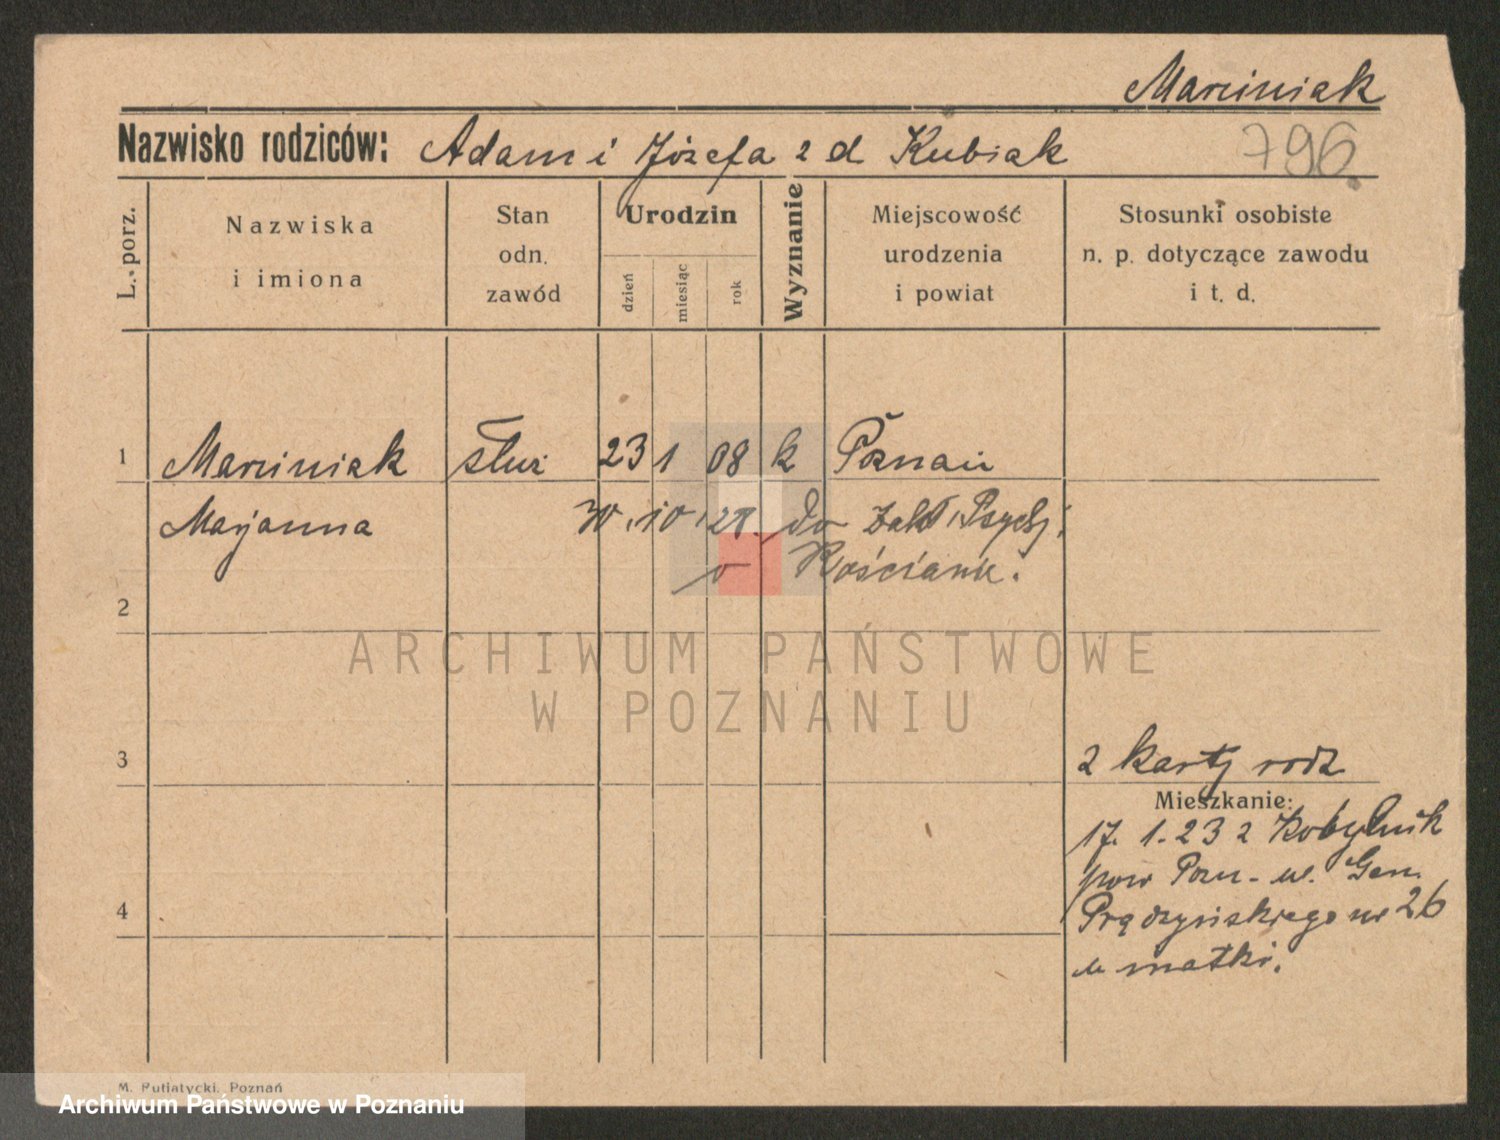 Marciniak
Nazwisko rodziców: Adam i Józefa z d Kubiak
796.
L. porz.
Nazwiska
i imiona
Stan
odn.
zawód
Urodzin
dzień
miesiąc
rok
Wyznanie
Miejscowość
urodzenia
i powiat
Stosunki osobiste
n. p. dotyczące zawodu
i t. d.
1 Marciniak służ 23 1 08 k Poznań
Marjanna 30.10.28. do Zakł. Psych.
w Kościanie.
2
ARCHIWUM PAŃSTWOWE
W POZNANIU
3
2 karty rodz
Mieszkanie:
17. 1. 23 z Kobylnik
pow Pozn - ul. Gen.
4
Prądzyńskiego nr 26
u matki.
M. Putiatycki, Poznań
Archiwum Państwowe w Poznaniu